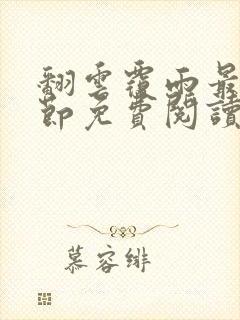 翻雲覆雨最
節免費閱讀
慕容緋